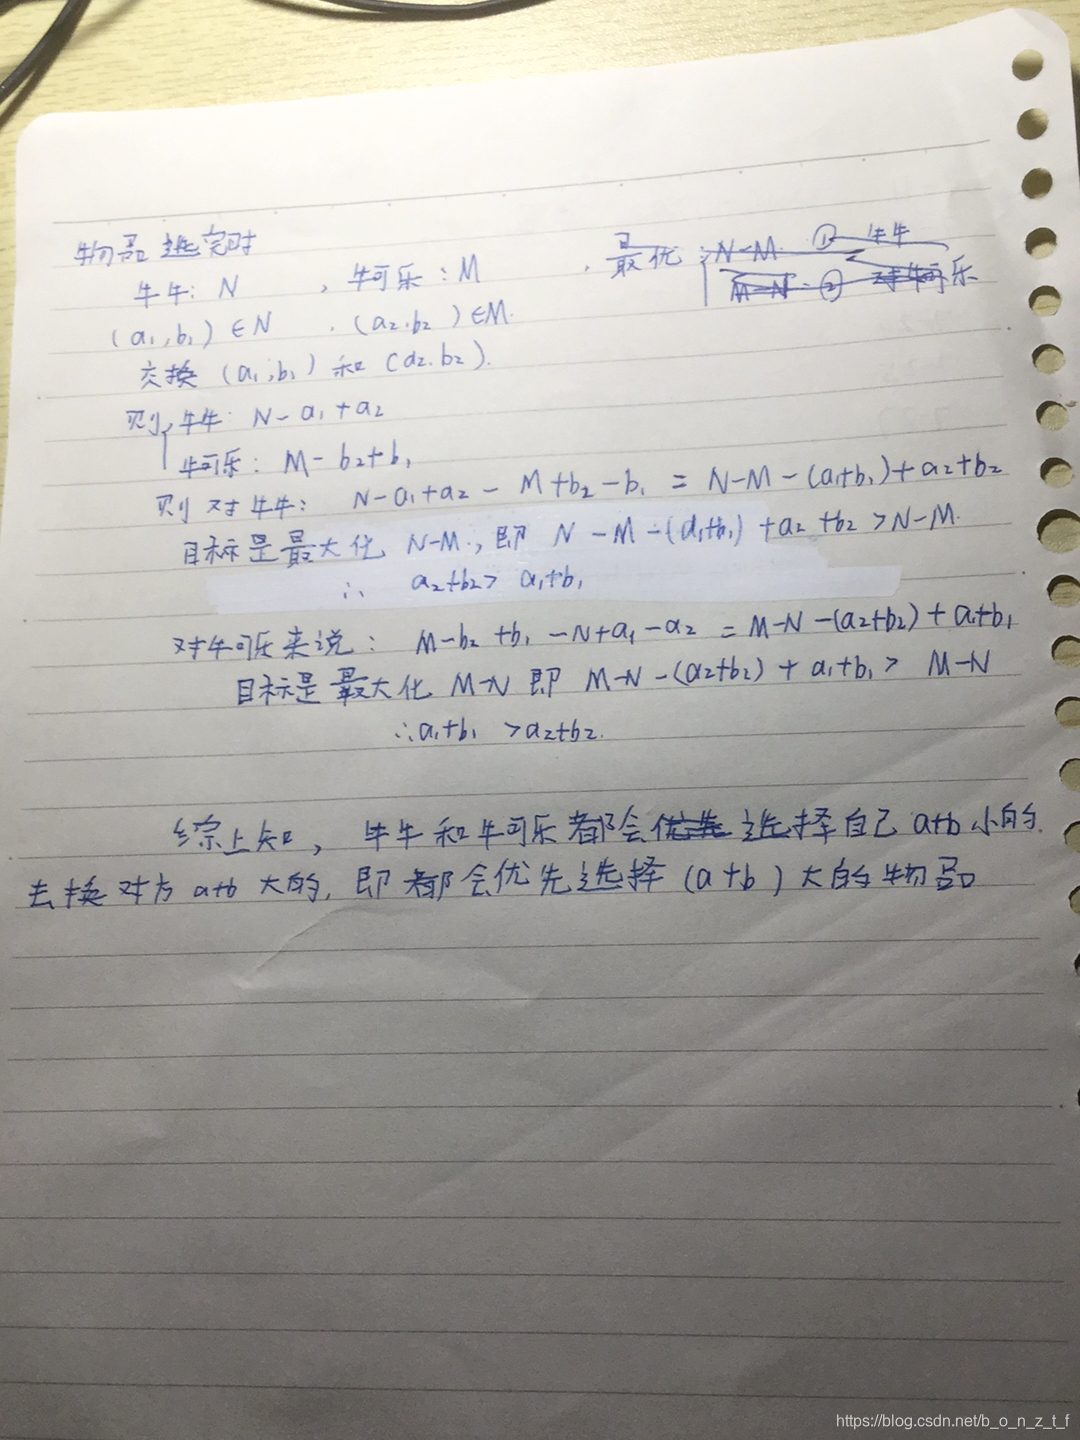 物品选完时
牛牛: N , 牛可乐: M , 最优: N-M. ① 牛牛
M-N. ② 对牛可乐
(a₁,b₁)∈N . (a₂.b₂)∈M.
交换 (a₁,b₁) 和 (a₂.b₂).
则 牛牛: N-a₁+a₂
牛可乐: M-b₂+b₁
则 对牛牛: N-a₁+a₂ - M+b₂-b₁ = N-M-(a₁+b₁)+a₂+b₂
目标是最大化 N-M., 即 N-M-(a₁+b₁)+a₂+b₂>N-M.
∴ a₂+b₂> a₁+b₁
对牛可乐来说: M-b₂+b₁-N+a₁-a₂ = M-N-(a₂+b₂)+a₁+b₁
目标是最大化 M-N 即 M-N-(a₂+b₂)+a₁+b₁> M-N
∴a₁+b₁ >a₂+b₂.
综上知, 牛牛和牛可乐都会优先选择自己a+b小的.
去换对方a+b大的, 即都会优先选择(a+b)大的物品
https://blog.csdn.net/b_o_n_z_t_f